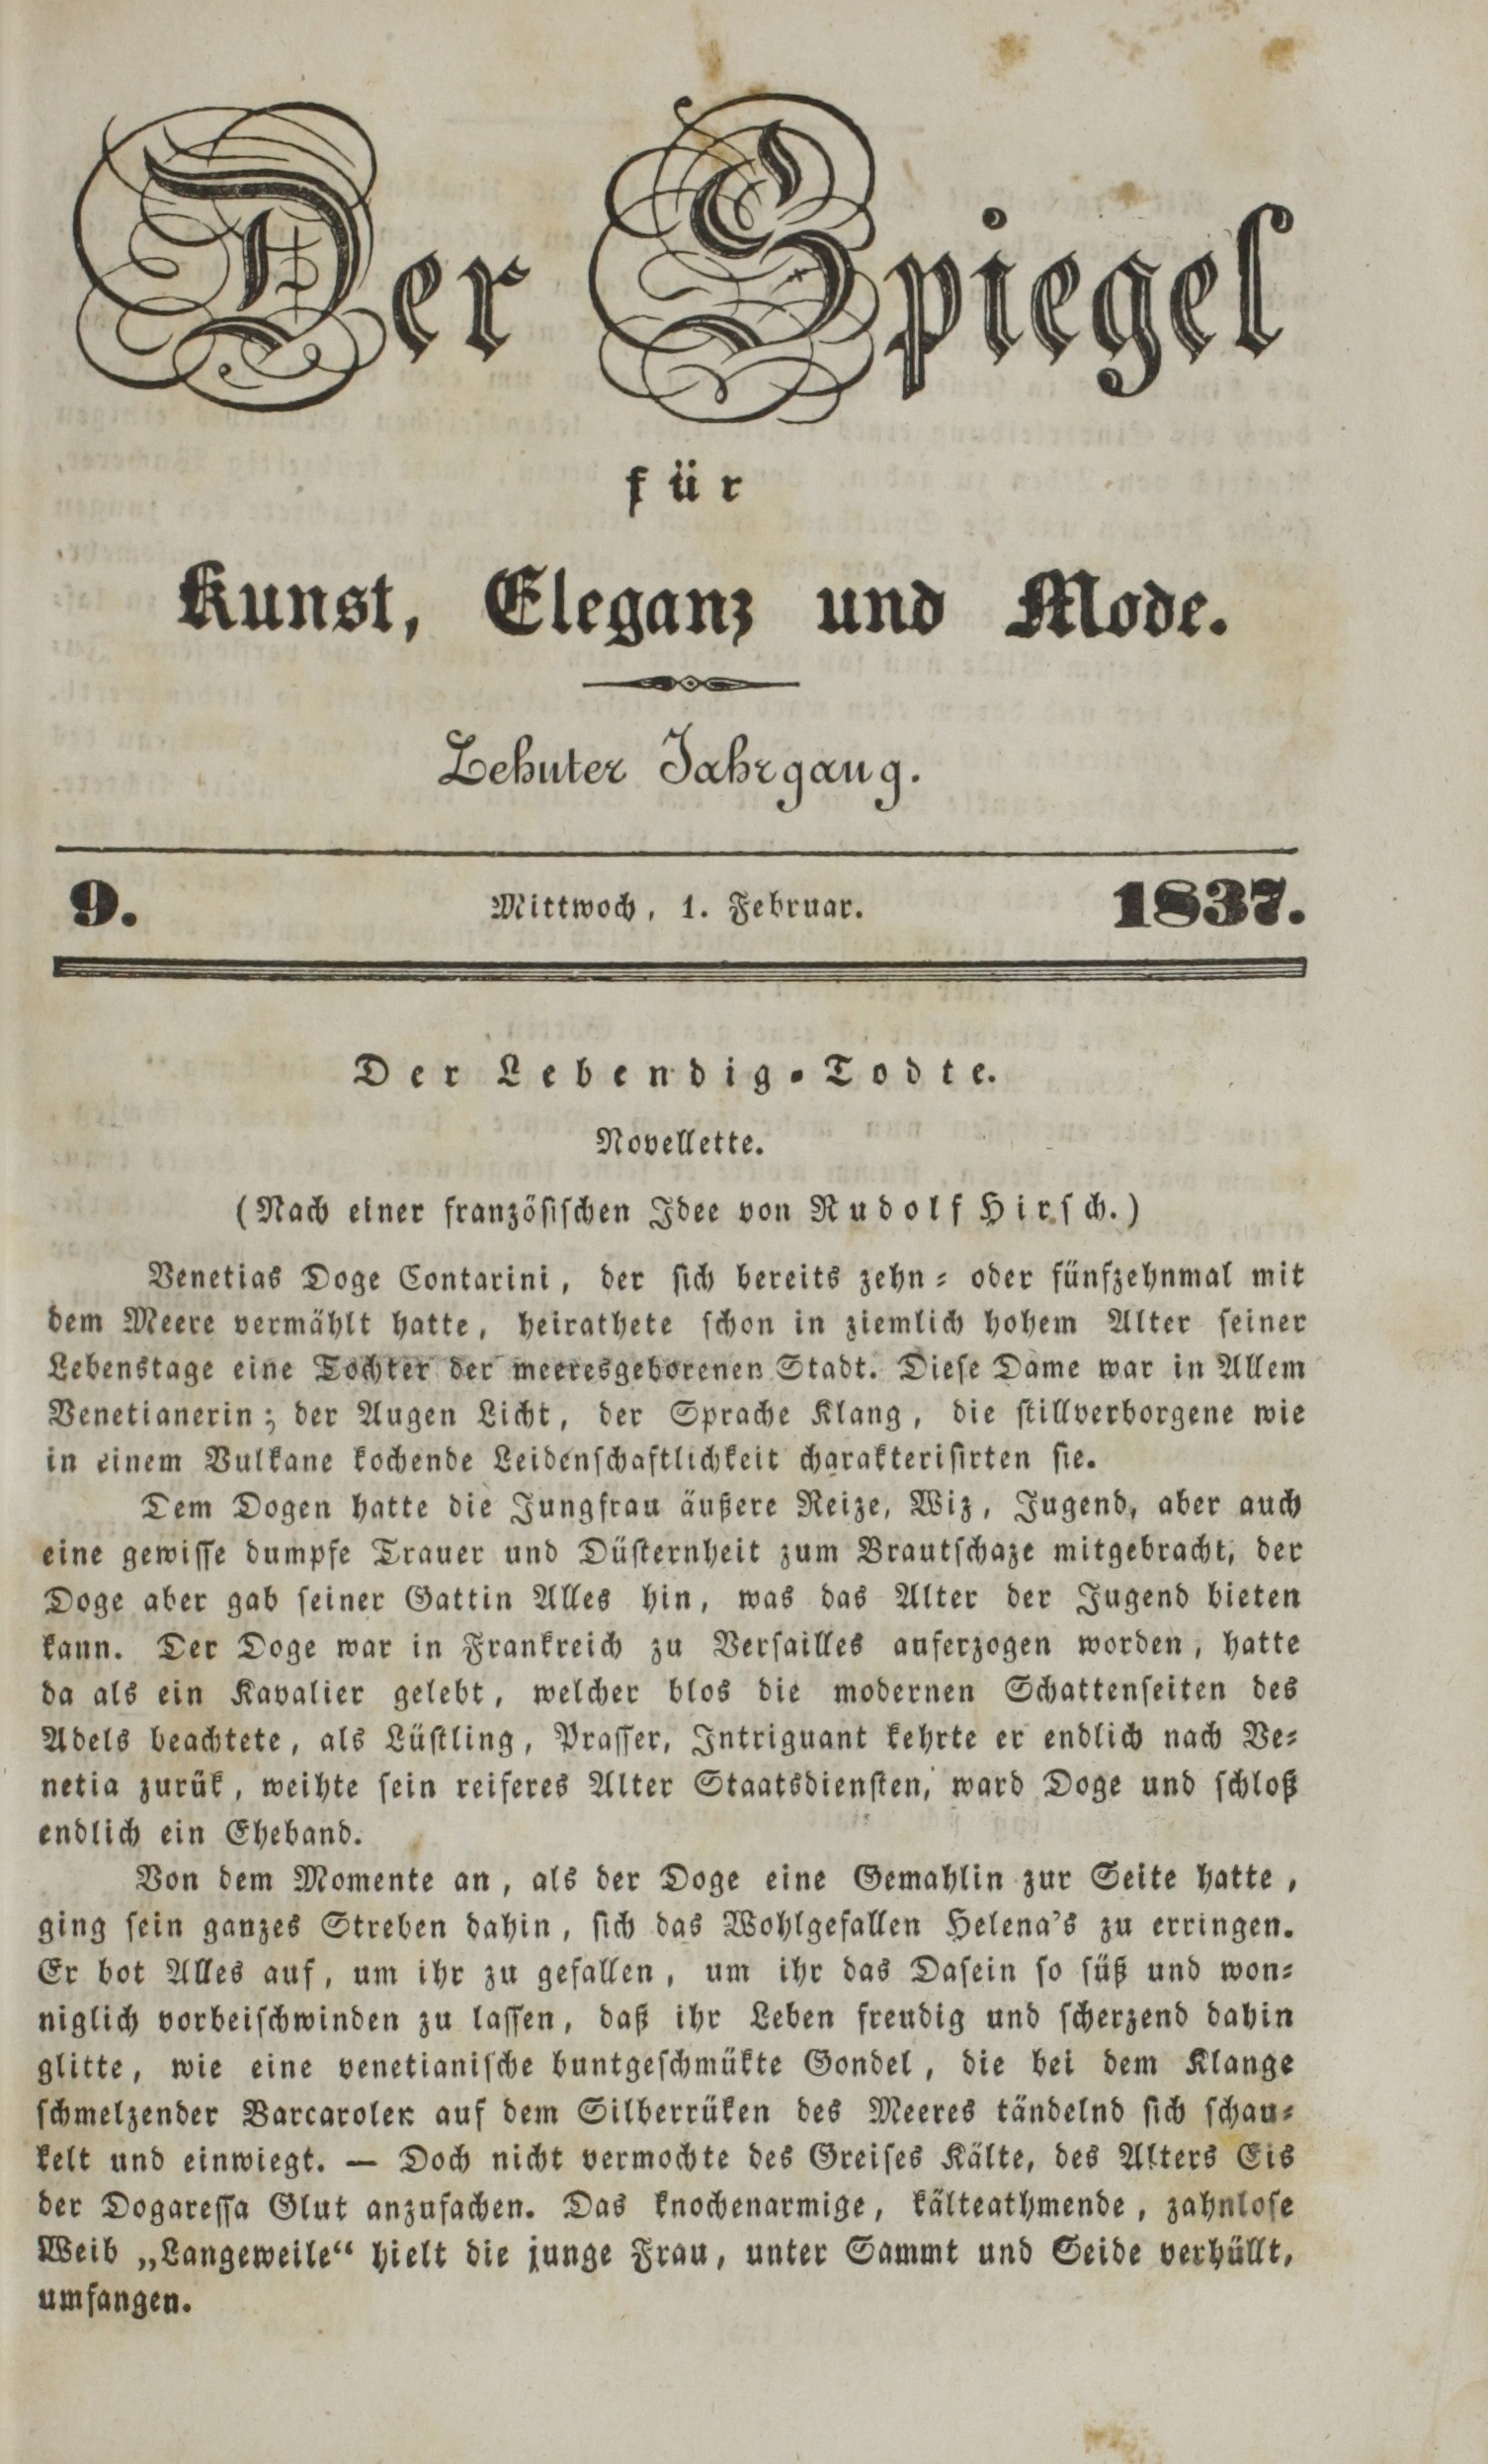 Der Spiegel
für
Kunst, Eleganz und Mode.
Zehnter Jahrgang.
9. Mittwoch, 1. Februar. 1837.
Der Lebendig-Todte.
Novellette.
(Nach einer französischen Idee von Rudolf Hirsch.)
Venetias Doge Contarini, der sich bereits zehn- oder fünfzehnmal mit
dem Meere vermählt hatte, heirathete schon in ziemlich hohem Alter seiner
Lebenstage eine Tochter der meeresgeborenen Stadt. Diese Dame war in Allem
Venetianerin; der Augen Licht, der Sprache Klang, die stillverborgene wie
in einem Vulkane kochende Leidenschaftlichkeit charakterisirten sie.
Dem Dogen hatte die Jungfrau äußere Reize, Wiz, Jugend, aber auch
eine gewisse dumpfe Trauer und Düsternheit zum Brautschaze mitgebracht, der
Doge aber gab seiner Gattin Alles hin, was das Alter der Jugend bieten
kann. Der Doge war in Frankreich zu Versailles auferzogen worden, hatte
da als ein Kavalier gelebt, welcher blos die modernen Schattenseiten des
Adels beachtete, als Lüstling, Prasser, Intriguant kehrte er endlich nach Ve-
netia zurük, weihte sein reiferes Alter Staatsdiensten, ward Doge und schloß
endlich ein Eheband.
Von dem Momente an, als der Doge eine Gemahlin zur Seite hatte,
ging sein ganzes Streben dahin, sich das Wohlgefallen Helena's zu erringen.
Er bot Alles auf, um ihr zu gefallen, um ihr das Dasein so süß und won-
niglich vorbeischwinden zu lassen, daß ihr Leben freudig und scherzend dahin
glitte, wie eine venetianische buntgeschmükte Gondel, die bei dem Klange
schmelzender Barcarolen auf dem Silberrüken des Meeres tändelnd sich schau-
kelt und einwiegt. — Doch nicht vermochte des Greises Kälte, des Alters Eis
der Dogaressa Glut anzufachen. Das knochenarmige, kälteathmende, zahnlose
Weib „Langeweile“ hielt die junge Frau, unter Sammt und Seide verhüllt,
umfangen.